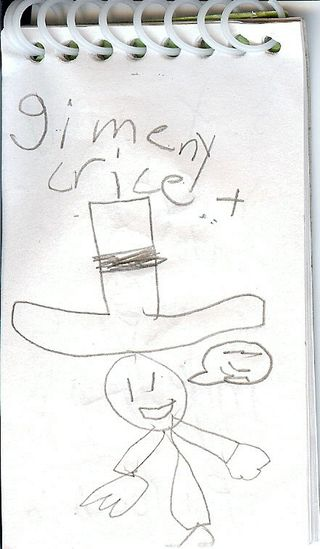 gimeny
cricet